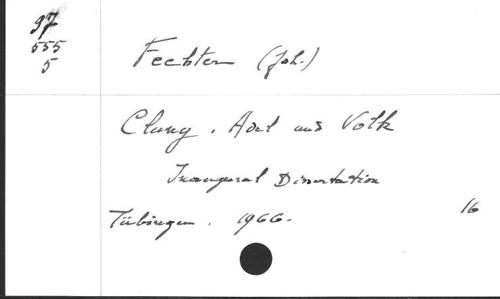 97
555
5
Fechter (Joh.)
Cluny. Adel und Volk
Inaugural Dissertation
Tübingen. 1966.
16